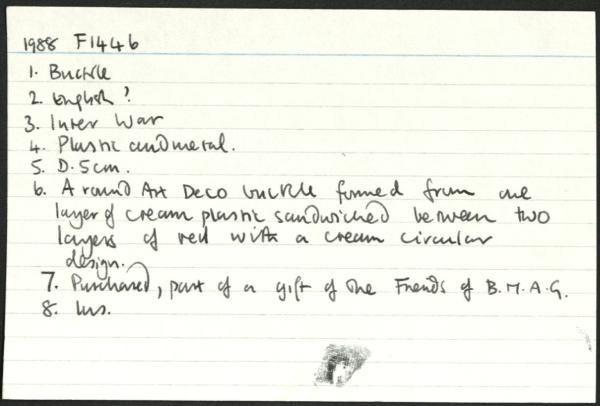 1988 F1446
1. Buckle
2. English?
3. Inter War
4. Plastic and metal.
5. D. 5cm.
6. A round Art Deco buckle formed from one
layer of cream plastic sandwiched between two
layers of red with a cream circular
design.
7. Purchased, part of a gift of the Friends of B.M.A.G.
8.